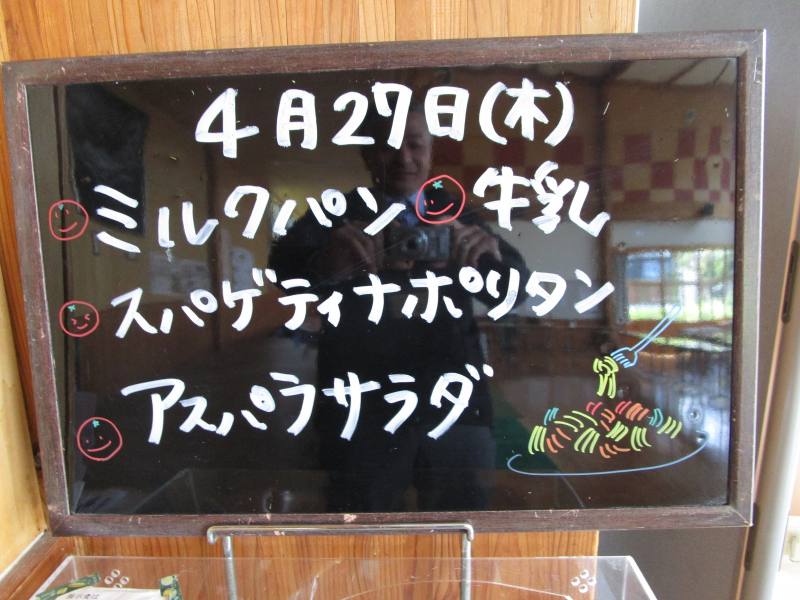 4月27日(木)
ミルクパン 牛乳
スパゲティナポリタン
アスパラサラダ